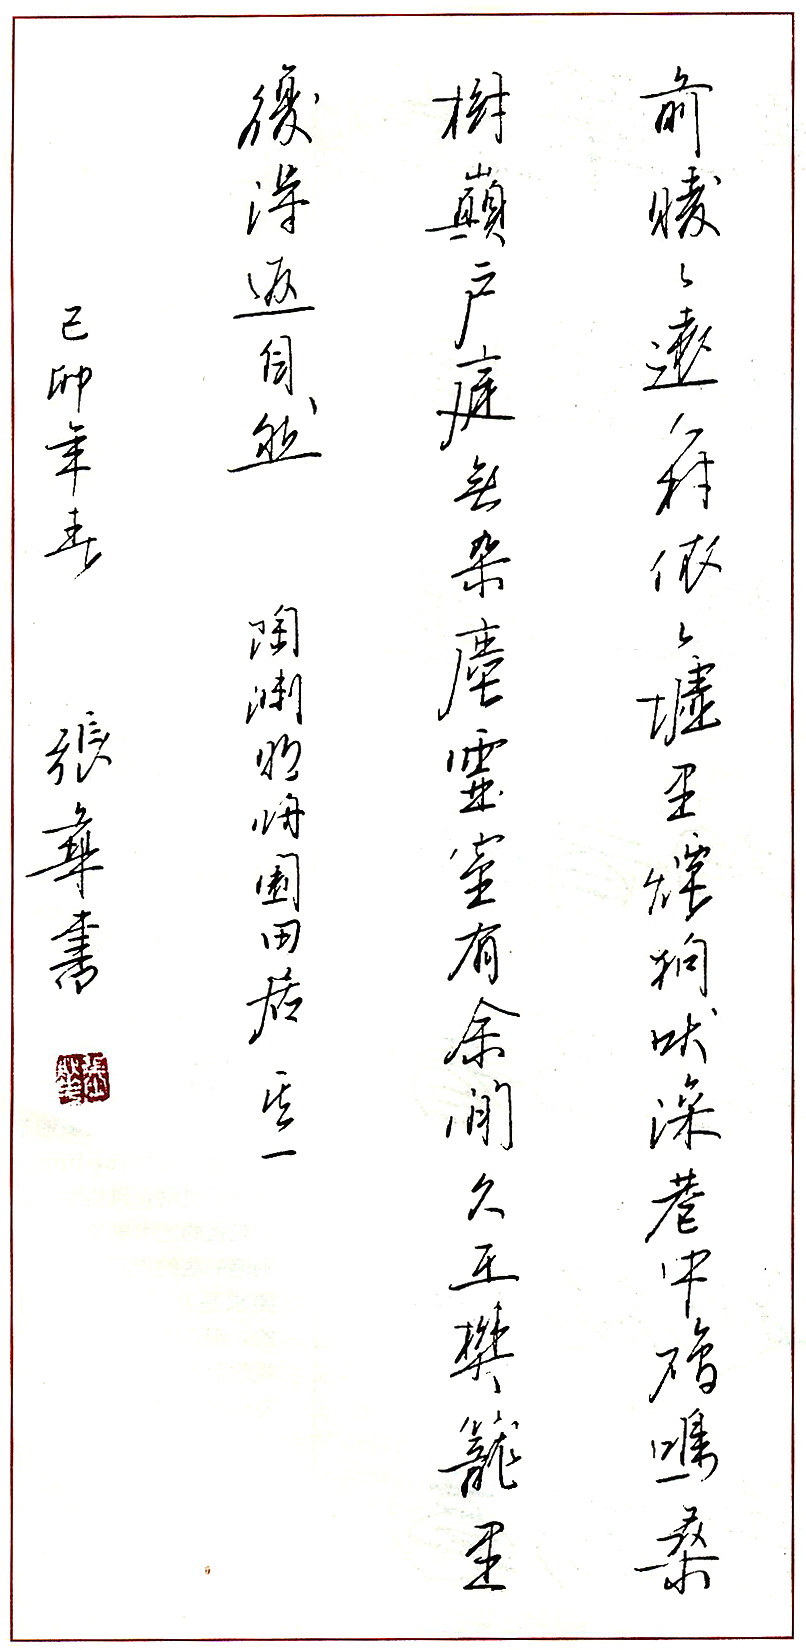 前暧々遠人村依々墟里煙狗吠深巷中鷄鳴桑
樹巔户庭無杂塵虚室有余闲久在樊籠里
復得返自然 陶渊明归園田居 其一
己卯年春 張華書